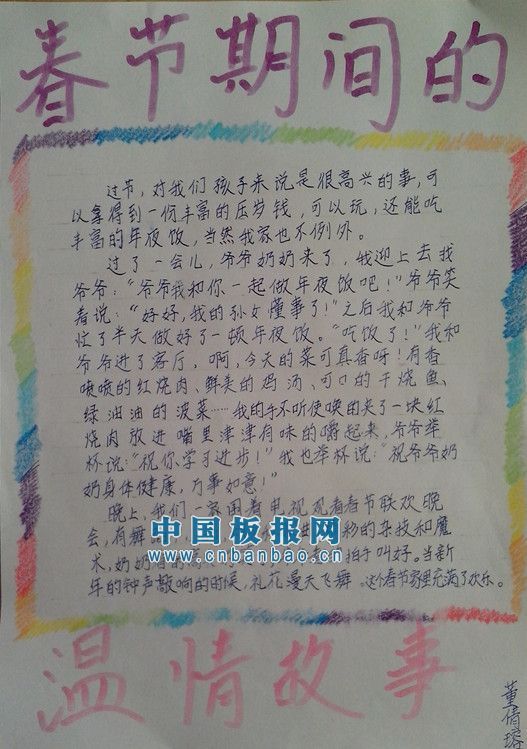 春节期间的
过节，对我们孩子来说是很高兴的事，可
以拿得到一份丰富的压岁钱，可以玩，还能吃
丰富的年夜饭，当然我家也不例外。
过了一会儿，爷爷奶奶来了，我迎上去找
爷爷：“爷爷我和你一起做年夜饭吧！”爷爷笑
着说：“好好，我的孙女懂事了！”之后我和爷爷
忙了半天做好了一顿年夜饭。“吃饭了！”我和
爷爷进了客厅，啊，今天的菜可真香呀！有香
喷喷的红烧肉、鲜美的鸡汤、可口的干烧鱼、
绿油油的菠菜……我的手不听使唤的夹了一块红
烧肉放进嘴里津津有味的嚼起来，爷爷举
杯说：“祝你学习进步！”我也举杯说：“祝爷爷奶
奶身体健康，万事如意！”
晚上，我们一家围着电视观看春节联欢晚
会，有舞 彩的杂技和魔
术，奶奶看的 拍手叫好。当新
年的钟声敲响的时候，礼花漫天飞舞。这个春节家里充满了欢乐。
中国板报网
www.cnbanbao.cn
温情故事
董倩瑢